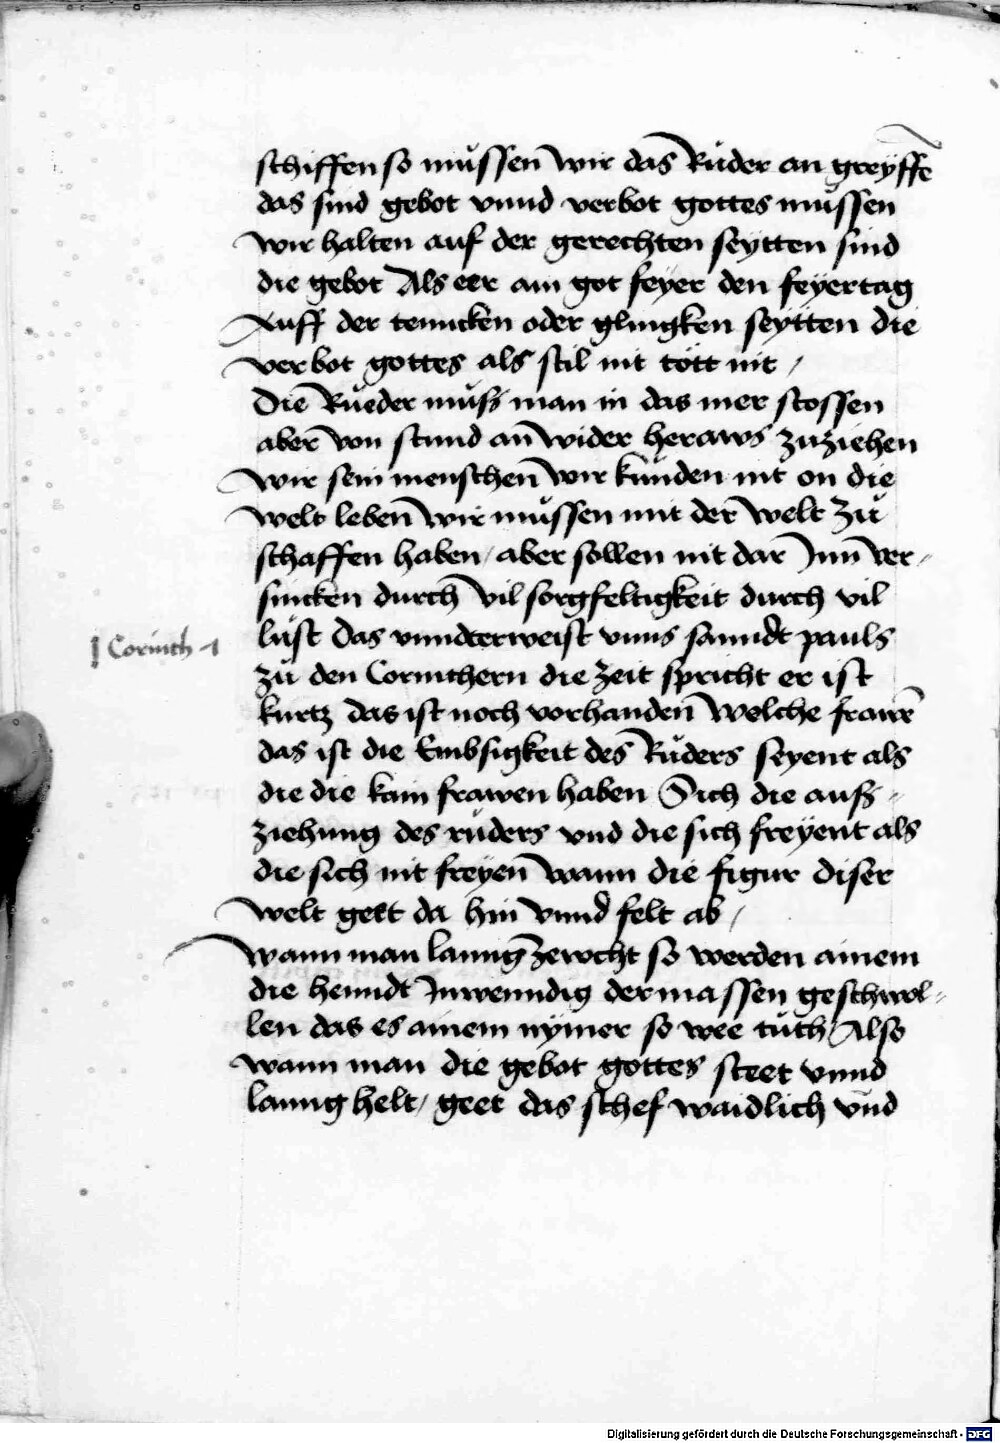 schiffen so müssen wir das Rüder an greyffē
das sind gebot vnnd verbot gottes müssen
wir halten auf der gerechten seytten sind
die gebot Als eer ain got feyer den feyertag
Auff der tenncken oder glingken seytten die
verbot gottes als stil nit tött nit /
Die Rüeder müß man in das mer stossen
aber von stund an wider heraws zuziehen
wir sein menschen wir künden nit on die
welt leben wir müssen mit der welt zů
schaffen haben / aber sollen nit dar Inn ver-
sincken durch vil sorgfeltigkeit durch vil
lüst Das vnndterweist vnns sanndt pauls
I Corinth 1
zů den Corinthern die zeit spricht er ist
kurtz das ist noch vorhanden welche frawē
das ist die Embsigkeit des Rüders seyent als
die die kain frawen haben Sich die auß-
ziehung des rüders vnd die sich freyent als
die sich nit freyen wann die figur diser
welt geet da hin vnnd felt ab /
Wann man lanng zewcht so werden ainem
die henndt Inwenndig dermassen geschwol-
len das es ainem nymer so wee tůth Also
wann man die gebot gottes steet vnnd
lanng helt / geet das schef waidlich vnd
Digitalisierung gefördert durch die Deutsche Forschungsgemeinschaft - DFG